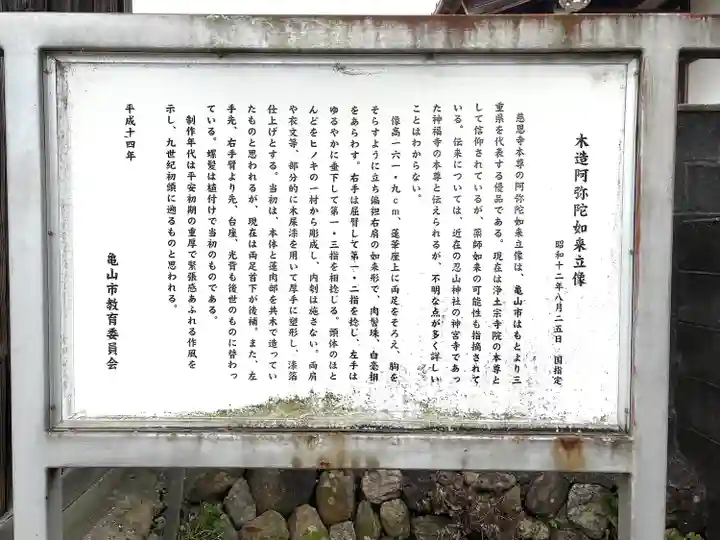 木造阿弥陀如来立像
昭和十二年八月二五日 国指定
慈恩寺本尊の阿弥陀如来立像は、亀山市はもとより三
重県を代表する優品である。現在は浄土宗寺院の本尊と
して信仰されているが、薬師如来の可能性も指摘されて
いる。伝来については、近在の忍山神社の神宮寺であっ
た神福寺の本尊と伝えられるが、不明な点が多く詳しい
ことはわからない。
像高一六一・九cm、蓮華座上に両足をそろえ、胸を
そらすように立ち偏袒右肩の如来形で、肉髻珠、白毫相
をあらわす。右手は屈臂して第一・二指を捻じ、左手は
ゆるやかに垂下して第一・三指を相捻じる。頭体のほと
んどをヒノキの一村から彫成し、内刳は施さない。両肩
や衣文等、部分的に木屎漆を用いて厚手に塑形し、漆箔
仕上げとする。当初は、本体と蓮肉部を共木で造ってい
たものと思われるが、現在は両足首下が後補。また、左
手先、右手臂より先、台座、光背も後世のものに替わっ
ている。螺髪は植付けで当初のものである。
制作年代は平安初期の重厚で緊張感あふれる作風を
示し、九世紀初頭に遡るものと思われる。
平成十四年
亀山市教育委員会